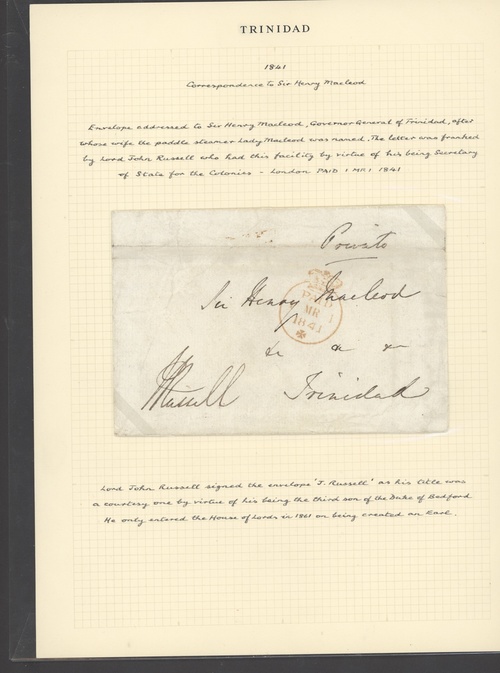 TRINIDAD
1841
Correspondence to Sir Henry Macleod
Envelope addressed to Sir Henry Macleod, Governor General of Trinidad, after
whose wife the paddle steamer Lady Macleod was named. The letter was franked
by Lord John Russell who had this facility by virtue of his being Secretary
of State for the Colonies - London PAID 1 MR 1 1841
Private
Sir Henry Macleod
PAID
MR 1
1841
&c &c &c
J Russell Trinidad
Lord John Russell signed the envelope 'J. Russell' as his title was
a courtesy one by virtue of his being the third son of the Duke of Bedford
He only entered the House of Lords in 1861 on being created an Earl.